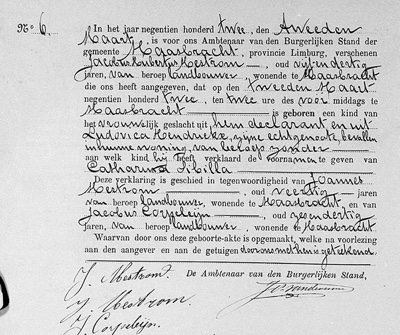 No 6.
In het jaar negentien honderd twee, den tweeden
Maart, is voor ons Ambtenaar van den Burgerlijken Stand der
gemeente Maasbracht, provincie Limburg, verschenen
Jacobus Hubertus Mestrom, oud vijf en dertig
jaren, van beroep landbouwer, wonende te Maasbracht
die ons heeft aangegeven, dat op den tweeden Maart
negentien honderd twee, ten twee ure des voor middags te
Maasbracht is geboren een kind van
het vrouwelijk geslacht uit, hem declarant en uit
Ludovica Hendrickx, zijne echtgenoote, bevallen
in hunne woning, van beroep zonder
aan welk kind hij heeft verklaard de voornamen te geven van
Catharina Sibilla
Deze verklaring is geschied in tegenwoordigheid van Joannes
Mestrom, oud veertig jaren
van beroep landbouwer, wonende te Maasbracht, en van
Jacobus Corpeleijn, oud zes en dertig
jaren, van beroep landbouwer, wonende te Maasbracht
Waarvan door ons deze geboorte-akte is opgemaakt, welke na voorlezing
aan den aangever en aan de getuigen door ons met hen is geteekend.
De Ambtenaar van den Burgerlijken Stand,
J. Mestrom
J. Mestrom.
J. Corpeleijn.